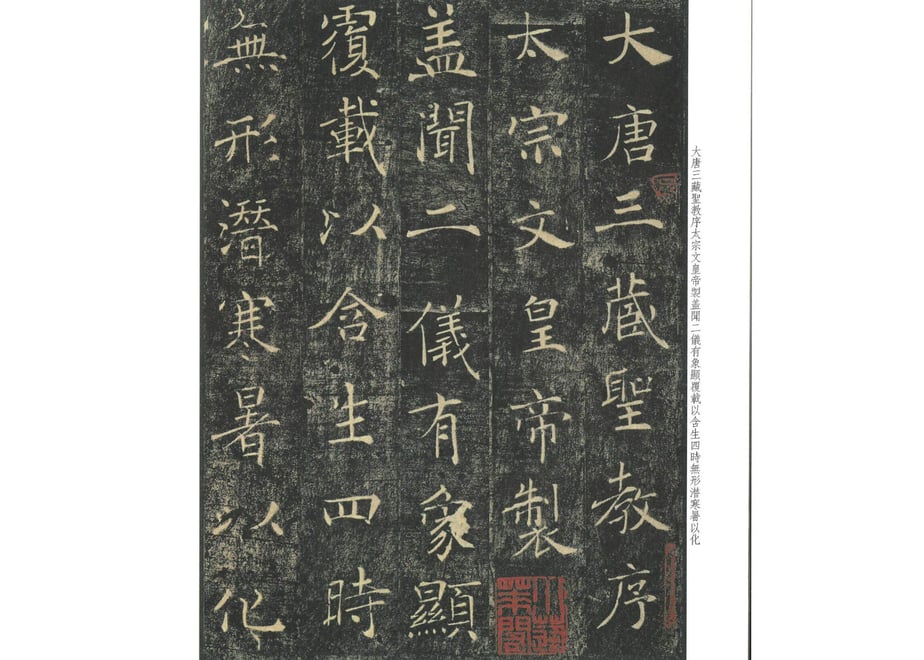 大唐三藏聖教序
太宗文皇帝製
盖聞二儀有象顯
覆載以含生四時
無形潛寒暑以化
大唐三藏聖教序太宗文皇帝製盖聞二儀有象顯覆載以含生四時無形潜寒暑以化